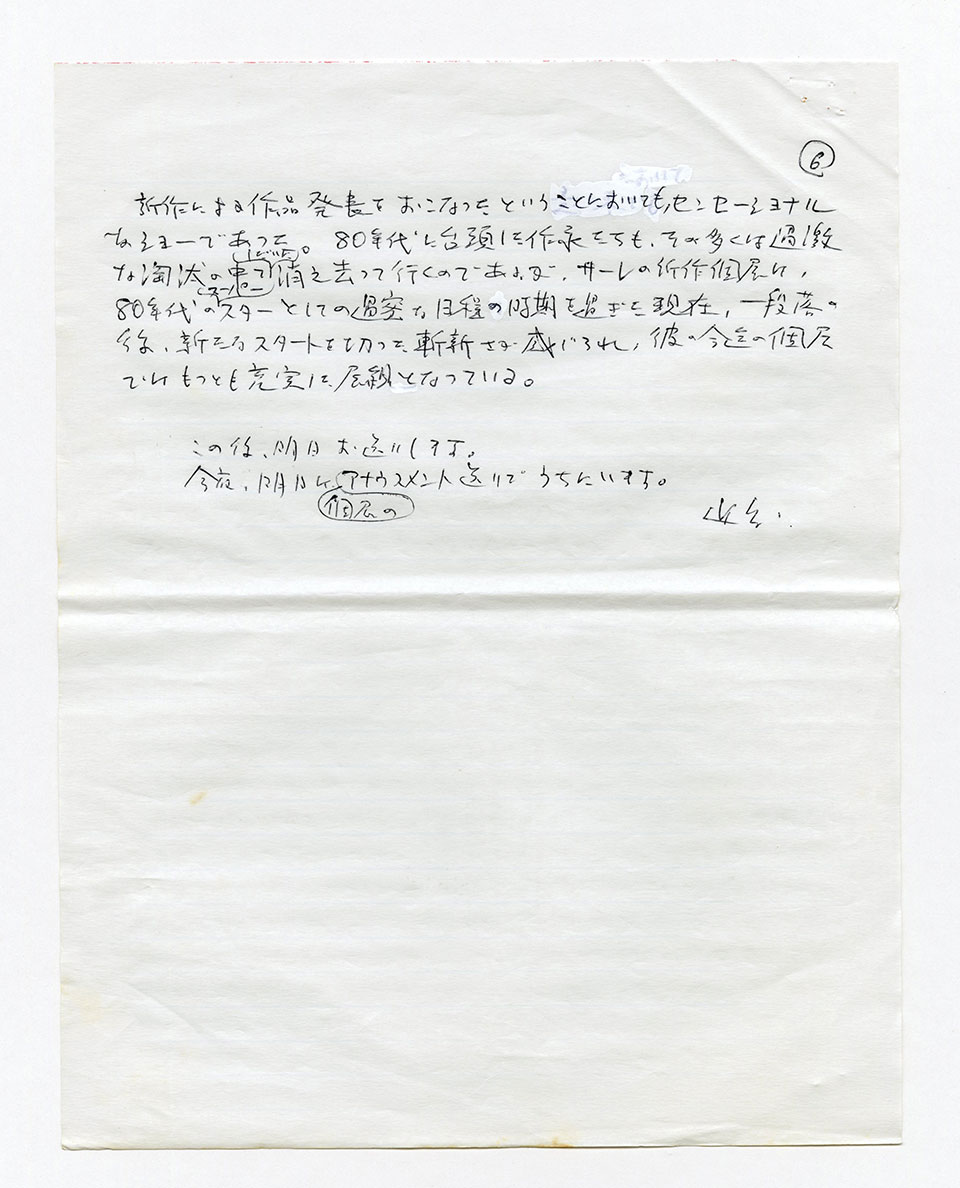 6
新作による作品発表をおこなったということにおいても、センセーショナル
なショーであった。80年代に台頭した作家たちも、その多くは過激
な淘汰の中で消え去って行くのであるが、サーレの新作個展は、
スーパー
80年代のスターとしての過密な日程の時期を過ぎた現在、一段落の
後、新たなスタートを切った斬新さが感じられ、彼の今迄の個展
ではもっとも充実した展観となっている。
この後、明日お送りします。
今夜、明日は、アナウスメント送りでうちにいます。
個展の